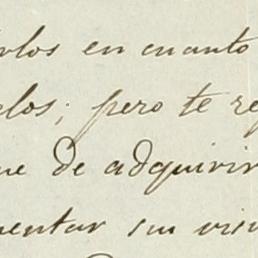 en cuanto
los; pero te re
ue de adquirir
mentar su vis